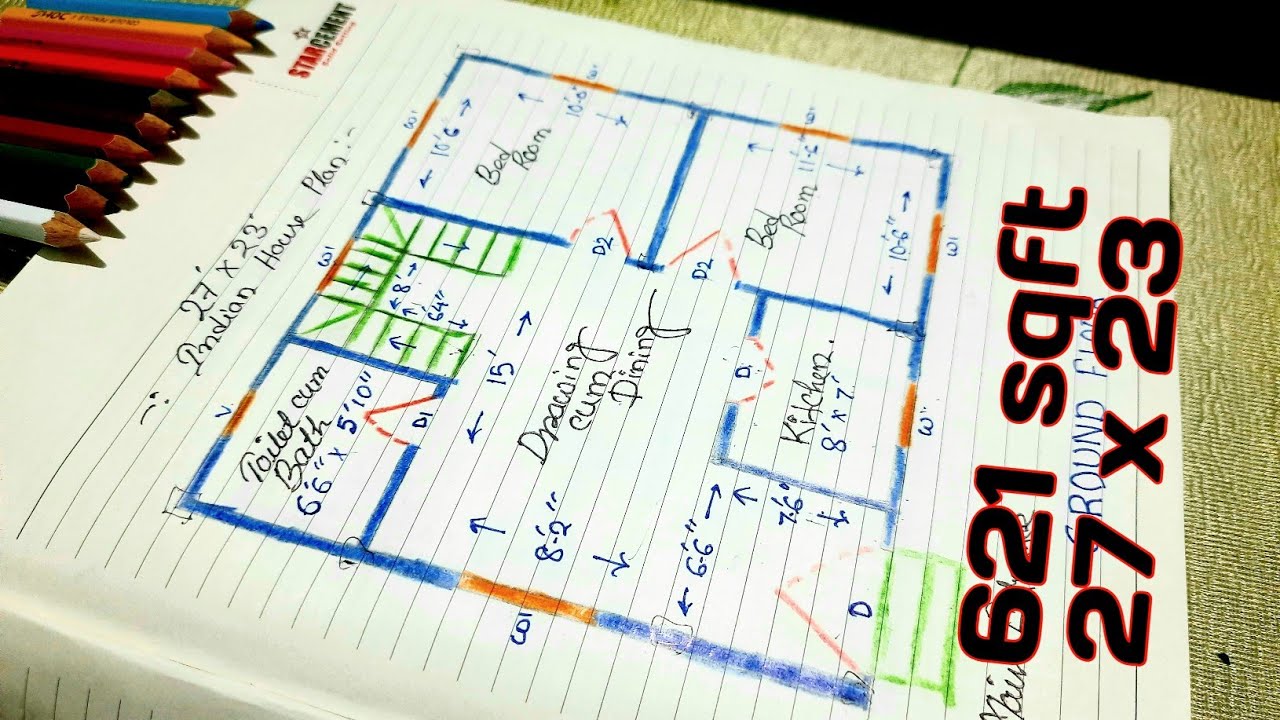 STARCEMENT
27' x 23'
Indian House Plan :-
W1
W1
W1
10'6
Bed
Room
10'-6"
Bed
Room
11'-6"
10'-6"
W1
D2
D2
W1
8'
6'4"
15'
Drawing
cum
Dining
8'-2"
V.
Toilet cum
Bath
6'6" x 5'10"
D1
D
Kitchen.
8' x 7'
W"
6'-6"
7'-6"
W1
D
GROUND FLOOR
Main
621 sqft
27 x 23